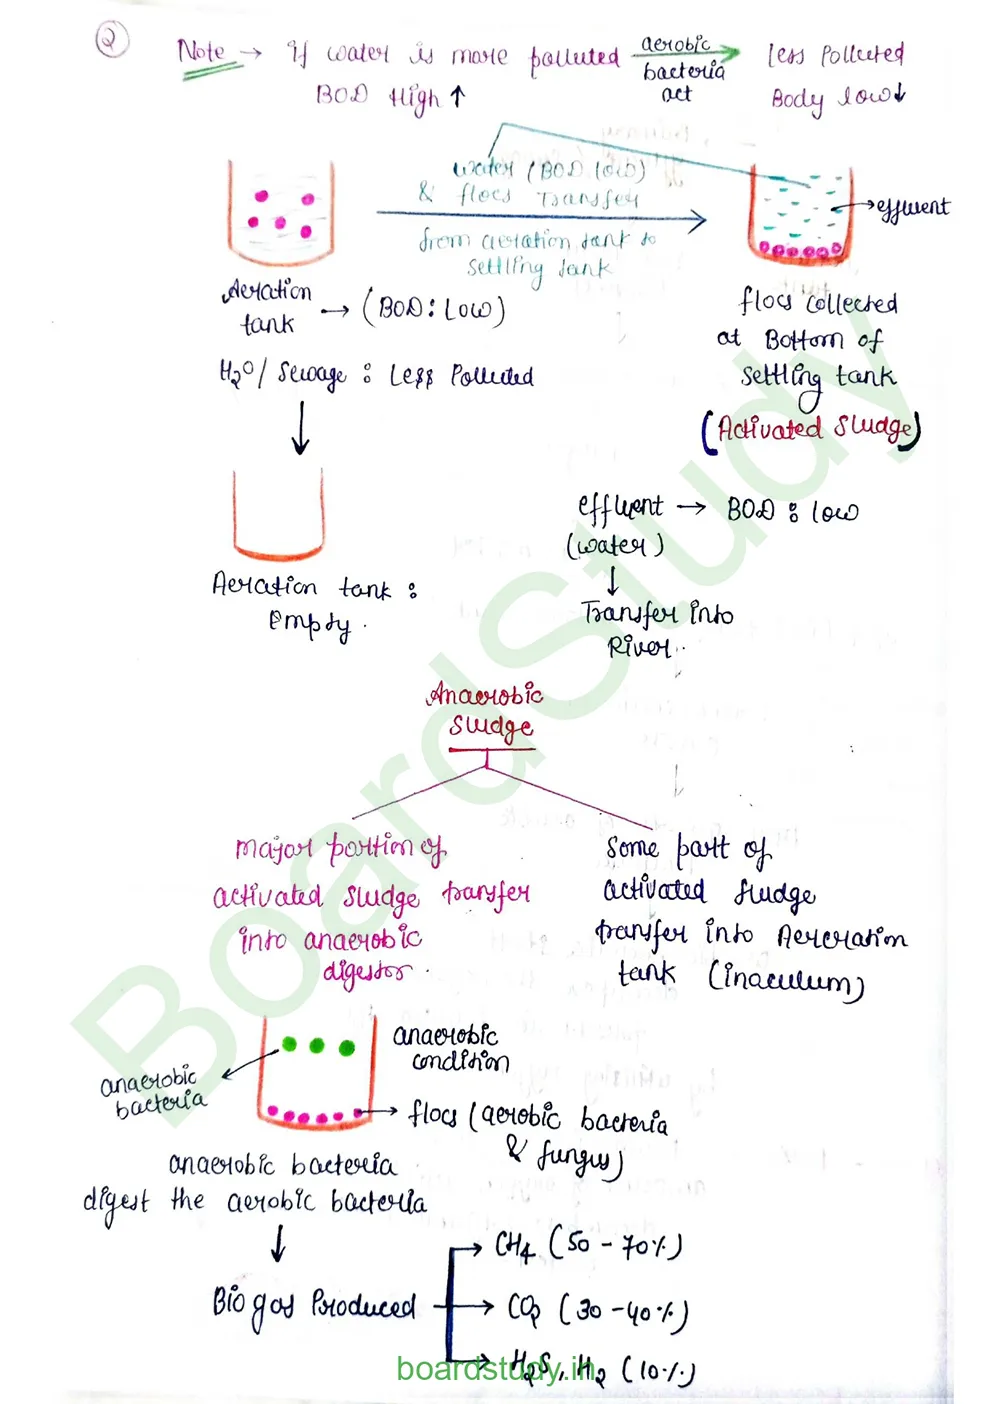 2
Note → if water is more polluted aerobic bacteria act → less Polluted
BOD High ↑ Body low ↓
water (BOD low)
& flocs Transfer
from aeration tank to
settling tank
→ effluent
Aeration tank → (BOD : Low)
H2O / Sewage : Less Polluted
flocs collected
at Bottom of
settling tank
(Activated Sludge)
effluent → BOD : low
(water)
↓
Transfer into
River.
Aeration tank :
Empty.
Anaerobic
Sludge
major portion of
activated sludge transfer
into anaerobic
digestor.
Some part of
activated sludge
transfer into Aereration
tank (inaculum)
anaerobic
condition
anaerobic
bacteria
→ flocs (aerobic bacteria
& fungus)
anaerobic bacteria
digest the aerobic bacteria
↓
Bio gas Produced
→ CH4 (50 - 70%)
→ CO2 (30 - 40%)
→ H2S, H2 (10%)
BoardStudy
boardstudy.in